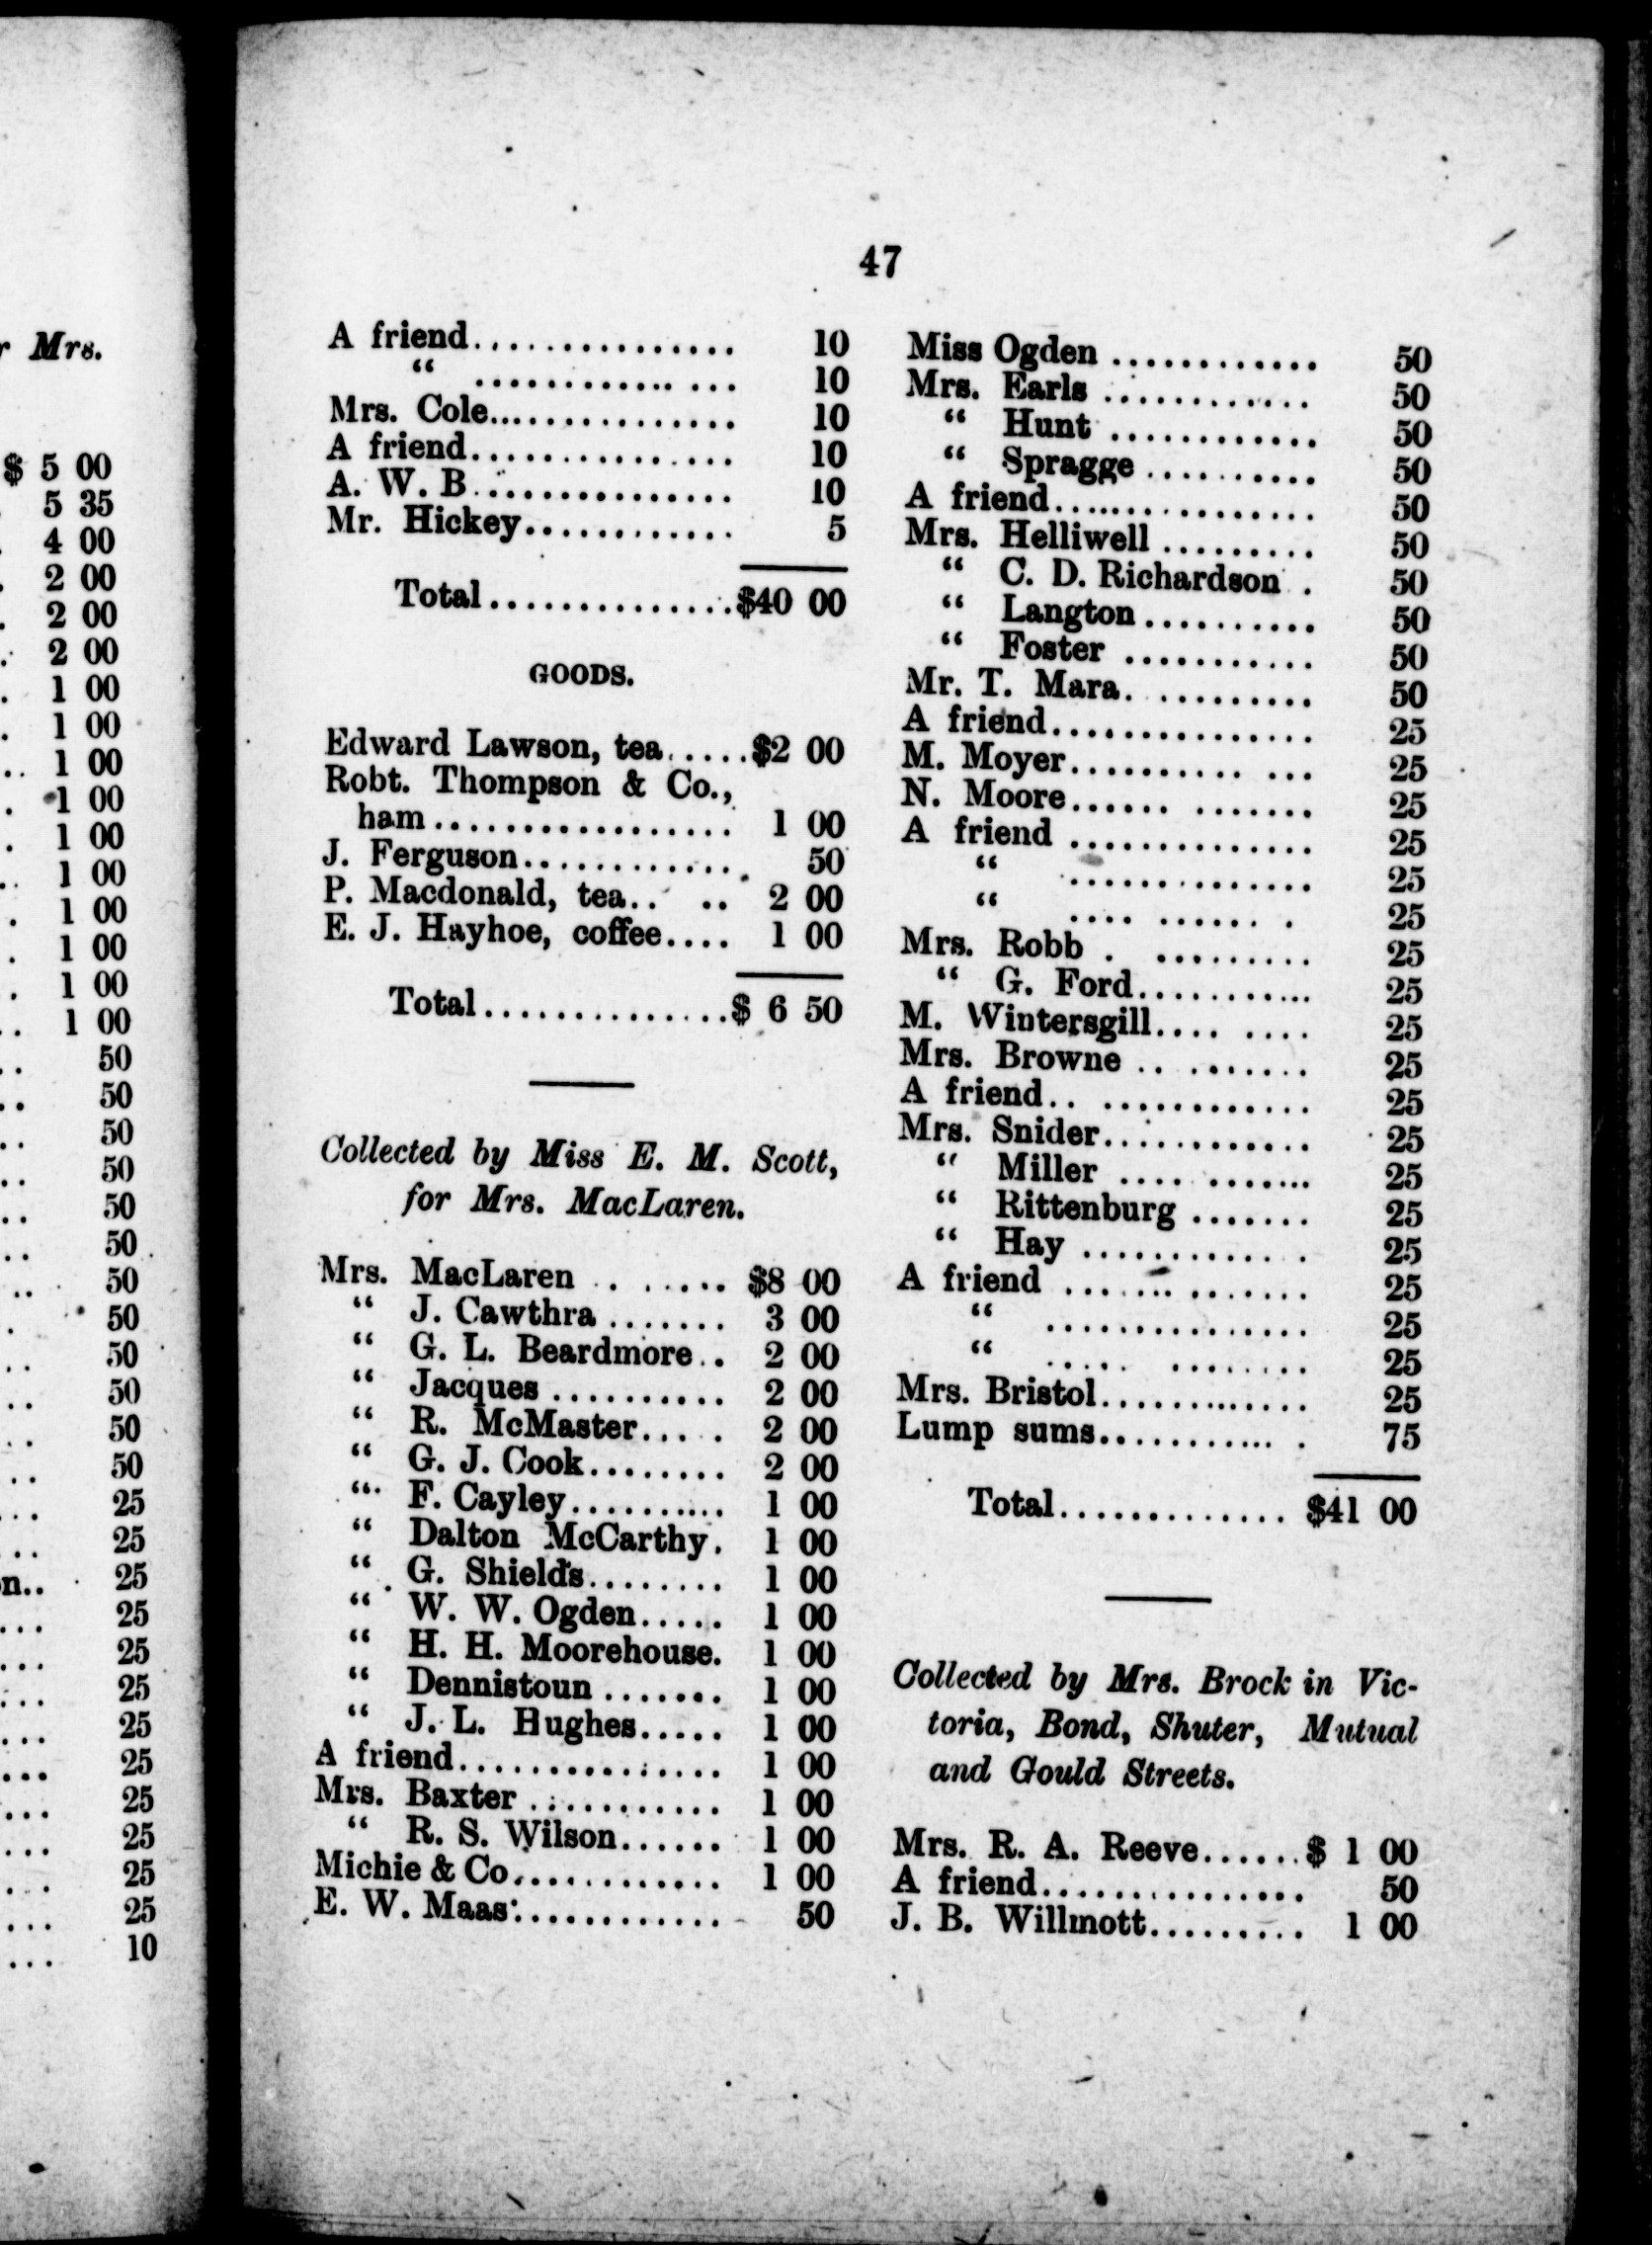 r Mrs.
$ 5 00
5 35
4 00
2 00
2 00
2 00
1 00
1 00
1 00
1 00
1 00
1 00
1 00
1 00
1 00
1 00
50
50
50
50
50
50
50
50
50
50
50
50
25
25
n.. 25
25
25
25
25
25
25
25
25
25
10
47
A friend................ 10
“ ................ 10
Mrs. Cole............... 10
A friend................ 10
A. W. B................ 10
Mr. Hickey............. 5
Total..............$40 00
GOODS.
Edward Lawson, tea.....$2 00
Robt. Thompson & Co.,
ham................. 1 00
J. Ferguson............. 50
P. Macdonald, tea.. .. 2 00
E. J. Hayhoe, coffee.... 1 00
Total..............$ 6 50
Collected by Miss E. M. Scott,
for Mrs. MacLaren.
Mrs. MacLaren . ...... $8 00
“ J. Cawthra ....... 3 00
“ G. L. Beardmore.. 2 00
“ Jacques .......... 2 00
“ R. McMaster..... 2 00
“ G. J. Cook........ 2 00
“ F. Cayley.......... 1 00
“ Dalton McCarthy. 1 00
“ G. Shields........ 1 00
“ W. W. Ogden..... 1 00
“ H. H. Moorehouse. 1 00
“ Dennistoun ....... 1 00
“ J. L. Hughes..... 1 00
A friend................ 1 00
Mrs. Baxter ............ 1 00
“ R. S. Wilson...... 1 00
Michie & Co............. 1 00
E. W. Maas............. 50
Miss Ogden ............ 50
Mrs. Earls ............ 50
“ Hunt ............ 50
“ Spragge .......... 50
A friend................ 50
Mrs. Helliwell ......... 50
“ C. D. Richardson . 50
“ Langton .......... 50
“ Foster ........... 50
Mr. T. Mara. .......... 50
A friend................ 25
M. Moyer.......... ... 25
N. Moore...... ....... 25
A friend .............. 25
“ .............. 25
“ .... ....... . 25
Mrs. Robb . ......... 25
“ G. Ford............ 25
M. Wintersgill.... .... 25
Mrs. Browne .. ....... 25
A friend.. ............ 25
Mrs. Snider............ 25
“ Miller .... ....... 25
“ Rittenburg ....... 25
“ Hay ............. 25
A friend ....... ....... 25
“ ............... 25
“ ..... ........ 25
Mrs. Bristol............ 25
Lump sums............ . 75
Total.............. $41 00
Collected by Mrs. Brock in Vic-
toria, Bond, Shuter, Mutual
and Gould Streets.
Mrs. R. A. Reeve......$ 1 00
A friend............... 50
J. B. Willmott......... 1 00